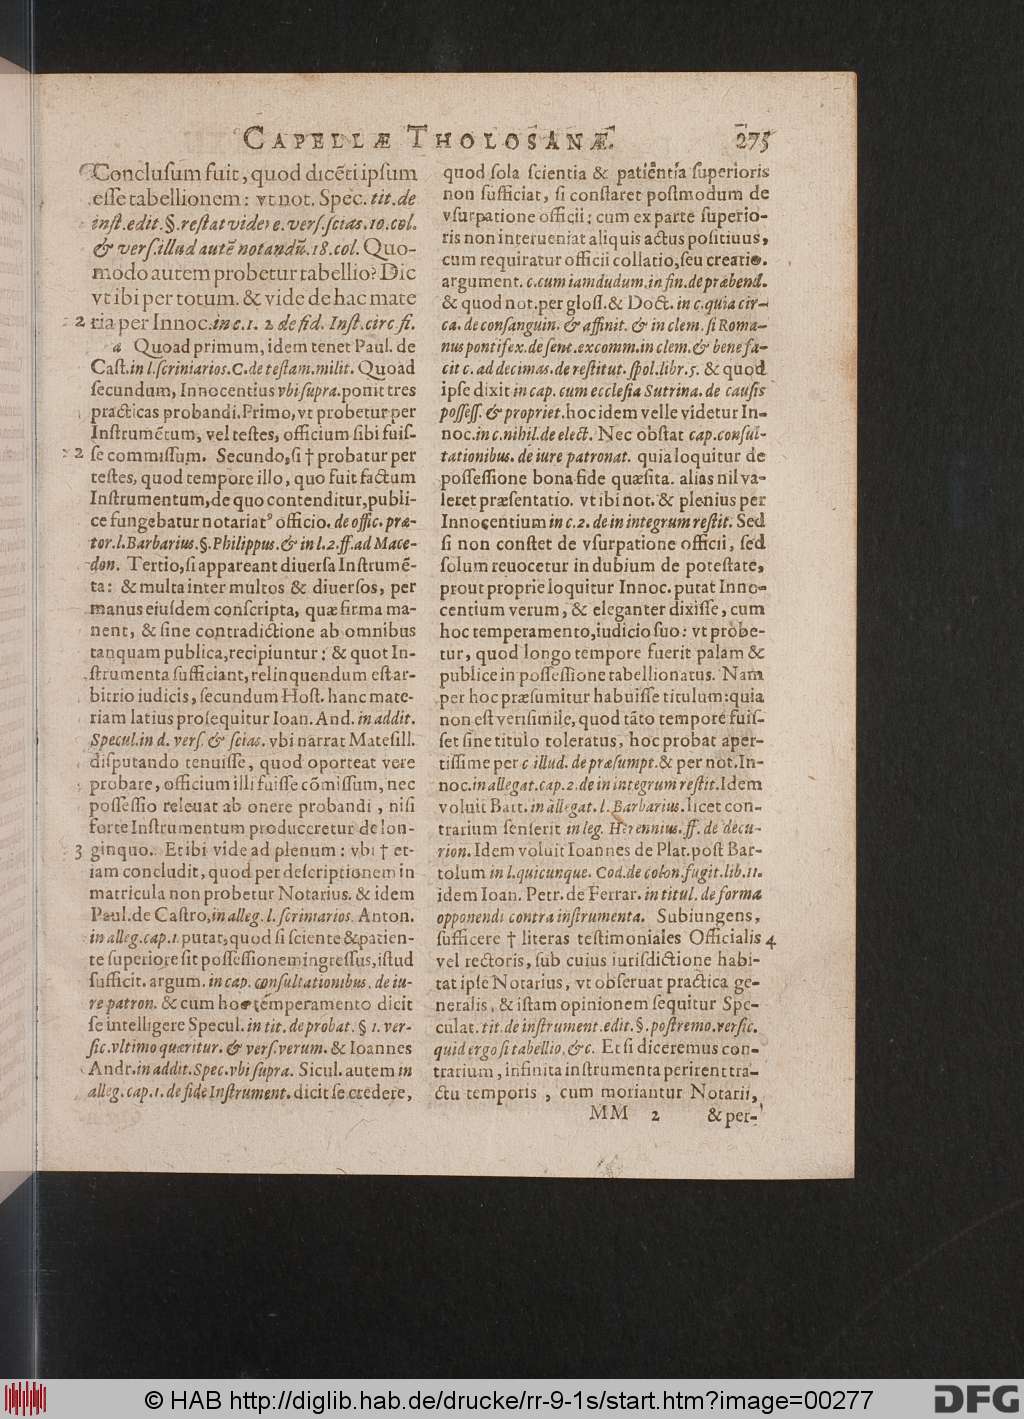 CAPELLÆ THOLOSANÆ. 275
Conclusum fuit, quod dicẽti ipsum
esse tabellionem: vt not. Spec. tit. de
inst. edit. §. restat videre. vers. scias. 10. col.
& vers. illud autẽ notandũ. 18. col. Quo-
modo autem probetur tabellio? Dic
vt ibi per totum. & vide de hac mate
2 ria per Innoc. in c. 1. 2 de fid. Inst. circ fi.
a Quoad primum, idem tenet Paul. de
Cast. in l. scriniarios. C. de testam. milit. Quoad
secundum, Innocentius vbi supra. ponit tres
practicas probandi. Primo, vt probetur per
Instrumẽtum, vel testes, officium sibi fuis-
2 se commissum. Secundo, si † probatur per
testes, quod tempore illo, quo fuit factum
Instrumentum, de quo contenditur, publi-
ce fungebatur notariatꝰ officio. de offic. præ-
tor. l. Barbarius. §. Philippus. & in l. 2. ff. ad Mace-
don. Tertio, si appareant diuersa Instrumẽ-
ta: & multa inter multos & diuersos, per
manus eiusdem conscripta, quæ firma ma-
nent, & sine contradictione ab omnibus
tanquam publica, recipiuntur: & quot In-
strumenta sufficiant, relinquendum est ar-
bitrio iudicis, secundum Host. hanc mate-
riam latius prosequitur Ioan. And. in addit.
Specul. in d. vers. & scias. vbi narrat Matesill.
disputando tenuisse, quod oporteat vere
probare, officium illi fuisse cõmissum, nec
possessio releuat ab onere probandi, nisi
forte Instrumentum produceretur de lon-
3 ginquo. Et ibi vide ad plenum: vbi † et-
iam concludit, quod per descriptionem in
matricula non probetur Notarius. & idem
Paul. de Castro, in alleg. l. scriniarios. Anton.
in alleg. cap. 1. putat, quod si sciente & patien-
te superiore sit possessionem ingressus, istud
sufficit. argum. in cap. consultationibus. de iu-
re patron. & cum hoc temperamento dicit
se intelligere Specul. in tit. de probat. § 1. ver-
sic. vltimo quæritur. & vers. verum. & Ioannes
Andr. in addit. Spec. vbi supra. Sicul. autem in
alleg. cap. 1. de fide Instrument. dicit se credere,
quod sola scientia & patientia superioris
non sufficiat, si constaret postmodum de
vsurpatione officii: cum ex parte superio-
ris non interueniat aliquis actus positiuus,
cum requiratur officii collatio, seu creatio.
argument. c. cum iamdudum. in fin. de præbend.
& quod not. per gloss. & Doct. in c. quia cir-
ca. de consanguin. & affinit. & in clem. si Roma-
nus pontifex. de sent. excomm. in clem. & bene fa-
cit c. ad decimas. de restitut. spol. libr. 5. & quod
ipse dixit in cap. cum ecclesia Sutrina. de causis
possess. & propriet. hoc idem velle videtur In-
noc. in c. nihil. de elect. Nec obstat cap. consul-
tationibus. de iure patronat. quia loquitur de
possessione bona fide quæsita. alias nil va-
leret præsentatio. vt ibi not. & plenius per
Innocentium in c. 2. de in integrum restit. Sed
si non constet de vsurpatione officii, sed
solum reuocetur in dubium de potestate,
prout proprie loquitur Innoc. putat Inno-
centium verum, & eleganter dixisse, cum
hoc temperamento, iudicio suo: vt probe-
tur, quod longo tempore fuerit palam &
publice in possessione tabellionatus. Nam
per hoc præsumitur habuisse titulum: quia
non est verisimile, quod tãto tempore fuis-
set sine titulo toleratus, hoc probat aper-
tissime per c. illud. de præsumpt. & per not. In-
noc. in allegat. cap. 2. de in integrum restit. Idem
voluit Bart. in allegat. l. Barbarius. licet con-
trarium senserit in leg. Herennius. ff. de decu-
rion. Idem voluit Ioannes de Plat. post Bar-
tolum in l. quicunque. Cod. de colon. fugit. lib. 11.
idem Ioan. Petr. de Ferrar. in titul. de forma
opponendi contra instrumenta. Subiungens,
sufficere † literas testimoniales Officialis 4
vel rectoris, sub cuius iurisdictione habi-
tat ipse Notarius, vt obseruat practica ge-
neralis, & istam opinionem sequitur Spe-
culat. tit. de instrument. edit. §. postremo. versic.
quid ergo si tabellio, &c. Et si diceremus con-
trarium, infinita instrumenta perirent tra-
ctu temporis, cum moriantur Notarii,
MM 2 & per-
© HAB http://diglib.hab.de/drucke/rr-9-1s/start.htm?image=00277
DFG